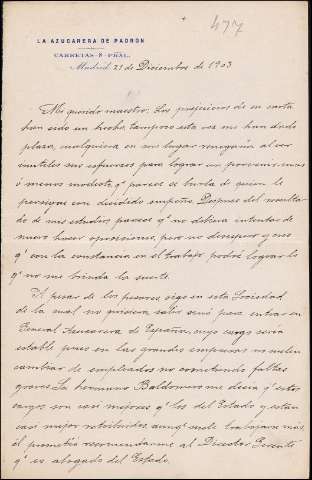 477
LA AZUCARERA DE PADRÓN
CARRETAS-8-PRAL.
Madrid, 21 de Diciembre de 1903
Mi querido maestro: Los prejuicios de su carta
han sido un hecho, tampoco esta vez me han dado
plaza, cualquiera en mi lugar renegaría al ver
inutiles sus esfuerzos para lograr un porvenir mas
ó menos modesto, qe parece se burla de quien le
persigue con decidido empeño. Despues del resulta-
do de mis estudios, parece qe no debiera intentar de
nuevo hacer oposiciones, pero no desespero y creo
qe con la constancia en el trabajo podré lograr lo
qe no me brinda la suerte.
A pesar de los pesares sigo en esta Sociedad
de la cual no quisiera salir sinó para entrar en
General Azucarera de España, cuyo cargo sería
estable pues en las grandes empresas no suelen
cambiar de empleados no cometiendo faltas
graves. Su hermano Baldomero me decía qe estos
cargos son casi mejores qe los del Estado y estan
casi mejor retribuidos, aunqe suele trabajarse más
él prometió recomendarme al Director Gerente
qe es abogado del Estado.